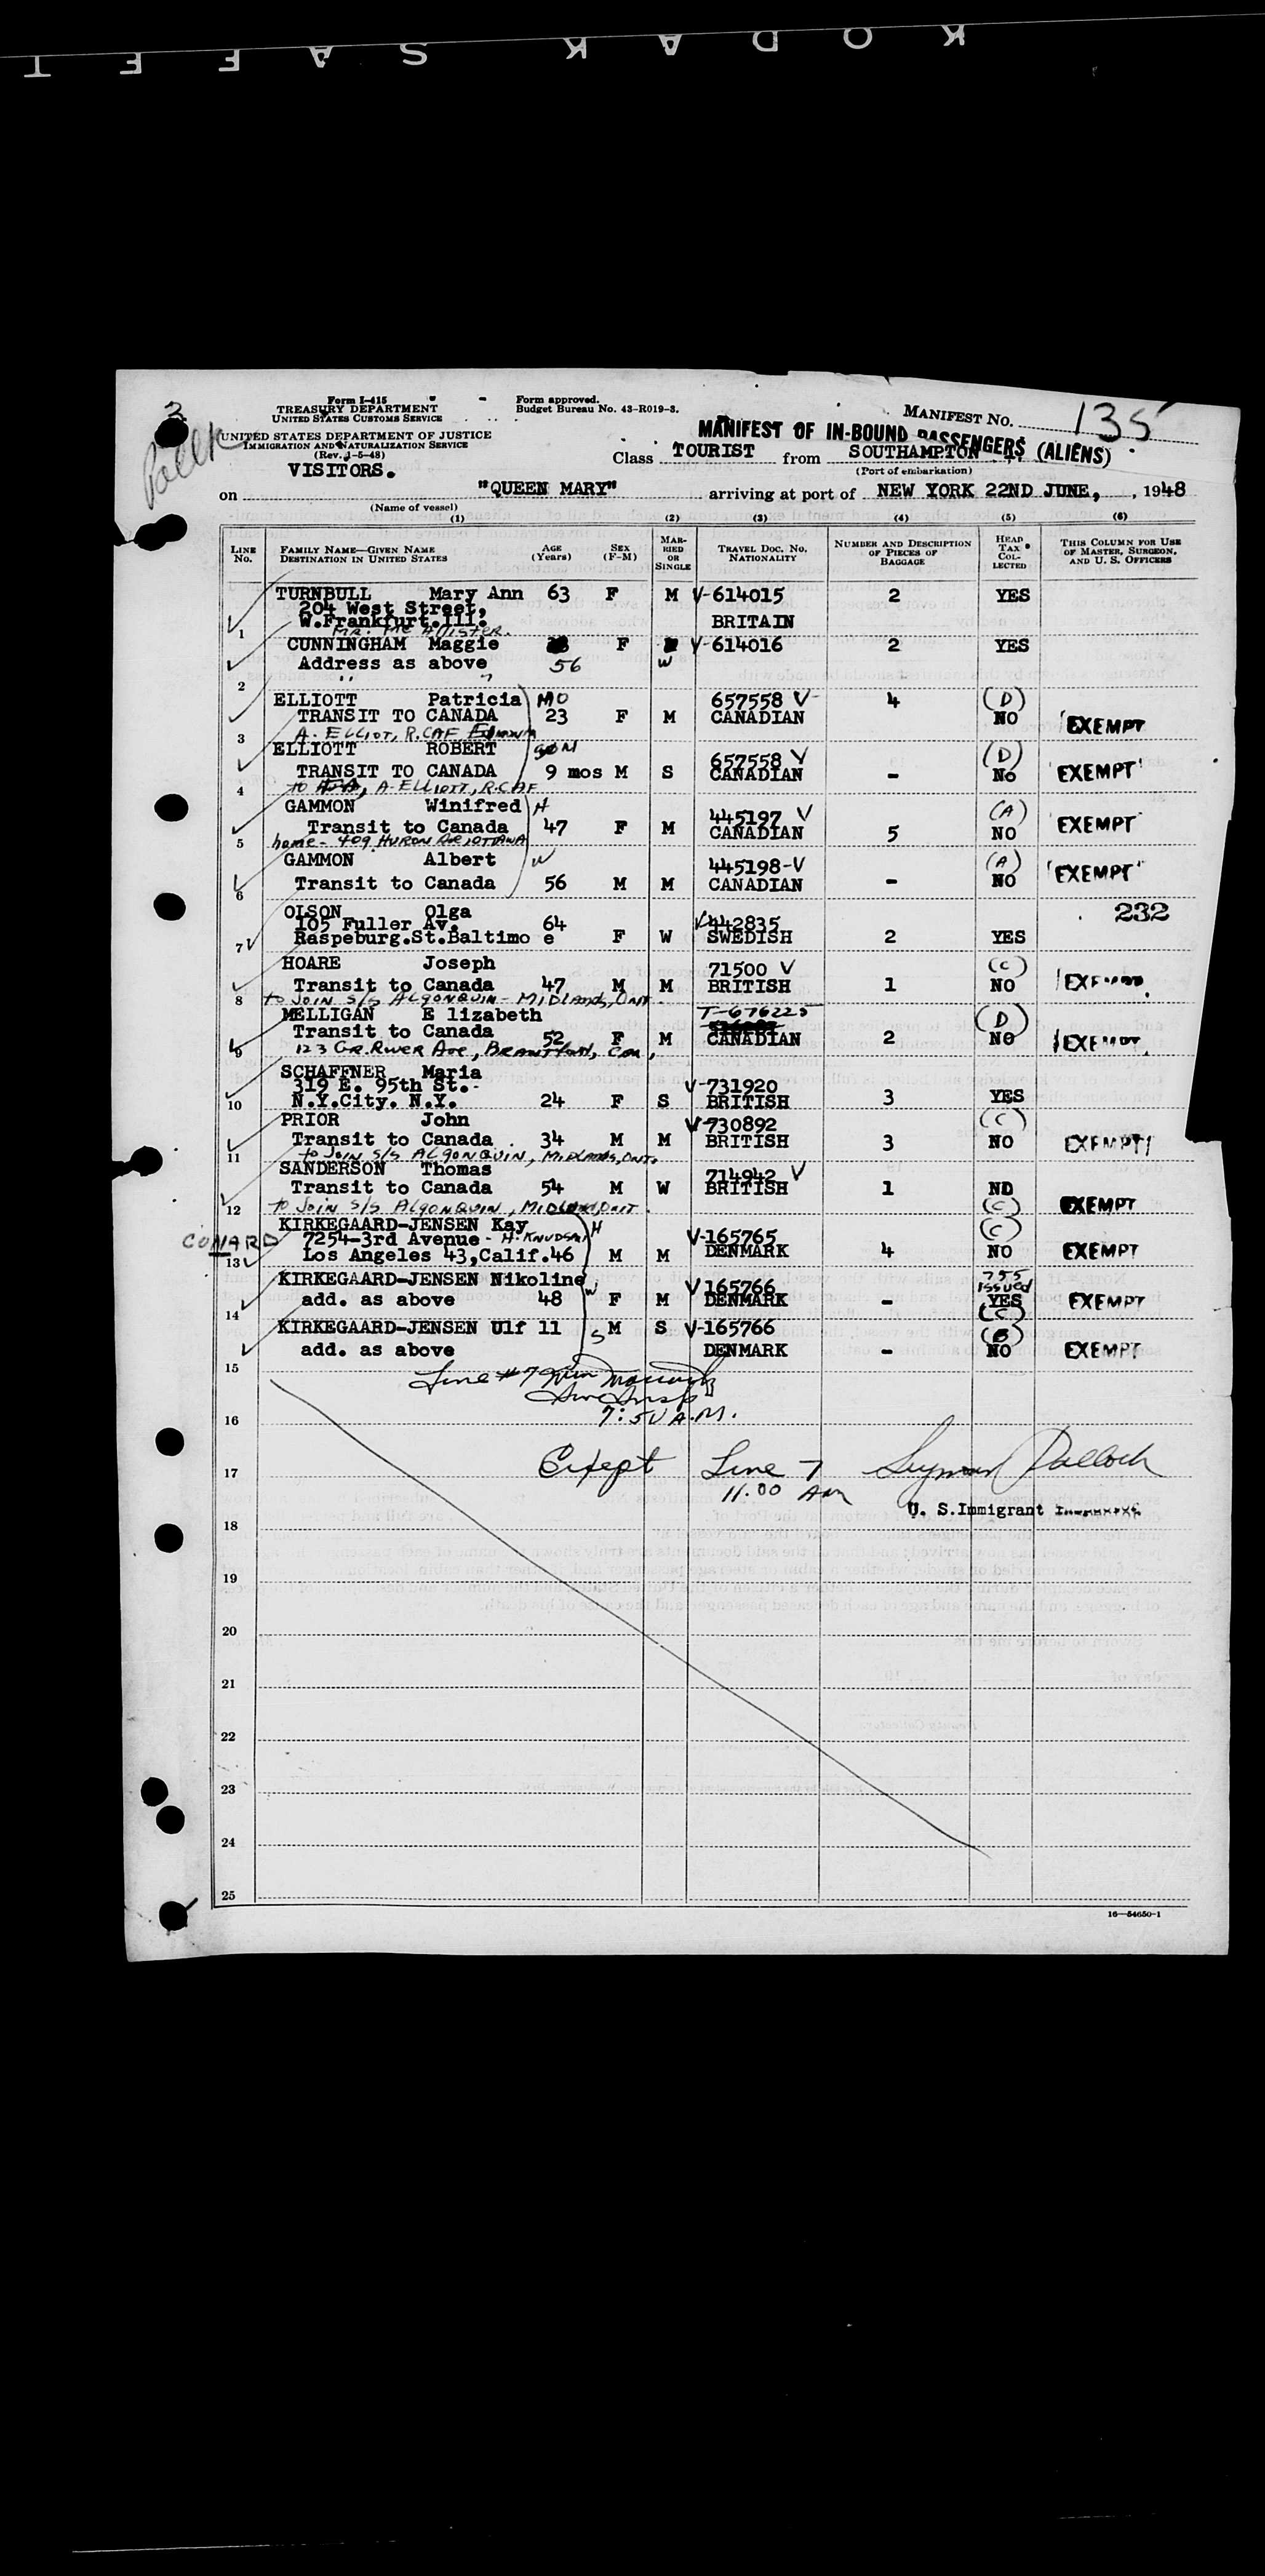 KODAK SAFET
3
Form I-415
TREASURY DEPARTMENT
UNITED STATES CUSTOMS SERVICE
Form approved.
Budget Bureau No. 43-R019-3.
MANIFEST NO. 135
UNITED STATES DEPARTMENT OF JUSTICE
IMMIGRATION AND NATURALIZATION SERVICE
(Rev. 1-5-48)
VISITORS.
MANIFEST OF IN-BOUND PASSENGERS (ALIENS)
Class TOURIST from SOUTHAMPTON
(Port of embarkation)
on "QUEEN MARY" arriving at port of NEW YORK 22ND JUNE, , 1948
(Name of vessel)
(1) (2) (3) (4) (5) (6)
LINE No. FAMILY NAME—GIVEN NAME DESTINATION IN UNITED STATES AGE (Years) SEX (F-M) MARRIED OR SINGLE TRAVEL DOC. NO. NATIONALITY NUMBER AND DESCRIPTION OF PIECES OF BAGGAGE HEAD TAX COLLECTED THIS COLUMN FOR USE OF MASTER, SURGEON, AND U. S. OFFICERS
TURNBULL Mary Ann 63 F M V-614015 2 YES
204 West Street,
W.Frankfurt.Ill. BRITAIN
1 MR. Mc Allister.
CUNNINGHAM Maggie F V-614016 2 YES
Address as above 56 W
2 " "
ELLIOTT Patricia MO 657558 V- 4 (D)
TRANSIT TO CANADA 23 F M CANADIAN NO EXEMPT
3 A. ELLIOT, R.CAF
ELLIOTT ROBERT SON 657558 V (D)
TRANSIT TO CANADA 9 mos M S CANADIAN - No EXEMPT
4 to A. ELLIOTT, R.CAF
GAMMON Winifred H 445197 V (A)
Transit to Canada 47 F M CANADIAN 5 NO EXEMPT
5 home - 409 HURON AVE, OTTAWA
GAMMON Albert W 445198-V (A)
Transit to Canada 56 M M CANADIAN - NO "EXEMPT"
6
OLSON Olga 232
105 Fuller Av. 64 V442835
7 Raspeburg.St.Baltimo e F W SWEDISH 2 YES
HOARE Joseph 71500 V (C)
Transit to Canada 47 M M BRITISH 1 NO EXEMPT
8 to JOIN S/S ALGONQUIN - MIDLANDS, ONT.
MELLIGAN E lizabeth T-676225 (D)
Transit to Canada 52 F M CANADIAN 2 NO EXEMPT
9 123 GR. RIVER AVE, BRANTFORD, CAN,
SCHAFFNER Maria
319 E. 95th St. V-731920
10 N.Y.City. N.Y. 24 F S BRITISH 3 YES
PRIOR John V-730892 (C)
Transit to Canada . 34 M M BRITISH 3 NO EXEMPT
11 to JOIN S/S ALGONQUIN, MIDLANDS, ONT.
SANDERSON Thomas 714942 V
Transit to Canada 54 M W BRITISH 1 NO
12 to JOIN S/S ALGONQUIN, (C) EXEMPT
KIRKEGAARD-JENSEN Kay H (C)
CUNARD 7254-3rd Avenue - H. KNUDSEN V-165765
13 Los Angeles 43,Calif. 46 M M DENMARK 4 NO EXEMPT
KIRKEGAARD-JENSEN Nikoline W V 165766 755 Issued
add. as above 48 F M DENMARK - YES EXEMPT
14 (C)
KIRKEGAARD-JENSEN Ulf 11 S M S V-165766 (B)
add. as above DENMARK - NO EXEMPT
15
Line #7
16 7:50 A.M.
17 Except Line 7 Seymour Pollock
11.00 AM
U. S.Immigrant
18
19
20
21
22
23
24
25
16—54650-1